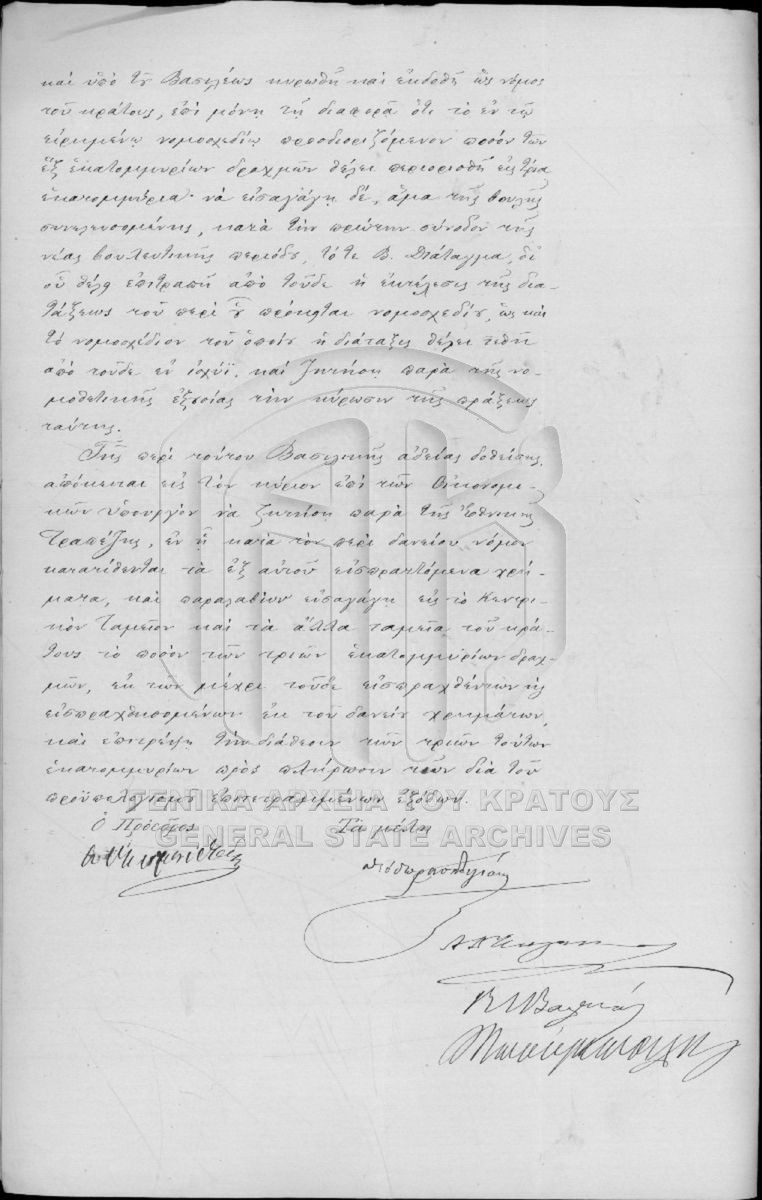 καὶ ὑπὸ τ Βασιλέως κυρωθῇ καὶ ἐκδοθῇ ὡς νόμος
τοῦ κράτους, ἐπὶ μόνῃ τῇ διαφορᾷ ὅτι τὸ ἐν τῷ
εἰρημένῳ νομοσχεδίῳ προσδιοριζόμενον ποσὸν τῶν
ἓξ ἑκατομμυρίων δραχμῶν θέλει περιορισθῆ εἰς τρία
ἑκατομμύρια· νὰ εἰσαγάγῃ δὲ, ἅμα τῆς βουλῆς
συνελευσομένης, κατὰ τὴν πρώτην σύνοδον τῆς
νέας βουλευτικῆς περιόδ, τό τε Β. Διάταγμα, δι'
οὗ θέλει ἐπιτραπῆ ἀπὸ τοῦδε ἡ ἐκτέλεσις τῆς δια-
τάξεως τοῦ περὶ πρόκειται νομοσχεδί, ὡς καὶ
τὸ νομοσχέδιον τοῦ ὁποί ἡ διάταξις θέλει τεθῆ
ἀπὸ τοῦδε ἐν ἰσχύϊ, καὶ ζητήσῃ παρὰ τῆς νο-
μοθετικῆς ἐξσίας τὴν κύρωσιν τῆς πράξεως
ταύτης.
Τῆς περὶ τούτου Βασιλικῆς ἀδείας δοθείσης,
ἀπόκειται εἰς τὸν κύριον ἐπὶ τῶν Οἰκονομι-
κῶν Ὑπουργὸν νὰ ζητήσῃ παρὰ τῆς Ἐθνικῆς
Τραπέζης, ἐν ᾗ κατὰ τὸν περὶ δανείου νόμον
κατατίθενται τὰ ἐξ αὐτοῦ εἰσπραττόμενα χρή-
ματα, καὶ παραλαβὼν εἰσαγάγῃ εἰς τὸ Κεντρι-
κὸν Ταμεῖον καὶ τὰ ἄλλα ταμεῖα τοῦ κρά-
τους τὸ ποσὸν τῶν τριῶν ἑκατομμυρίων δραχ-
μῶν, ἐκ τῶν μέχρι τοῦδε εἰσπραχθέντων
εἰσπραχθησομένων ἐκ τοῦ δανεί χρημάτων,
καὶ ἐπιτρέψῃ τὴν διάθεσιν τῶν τριῶν τούτων
ἑκατομμυρίων πρὸς πλήρωσιν τῶν διὰ τοῦ
προϋπολογισμ ἐπιτετραμμένων ἐξόδων.
Ὁ Πρόεδρος Τὰ μέλη
ΓΕΝΙΚΑ ΑΡΧΕΙΑ ΤΟΥ ΚΡΑΤΟΥΣ
GENERAL STATE ARCHIVES